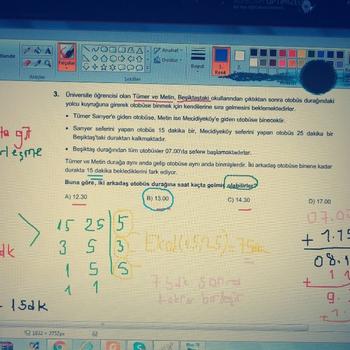 Anahat
Doldur
Fırçalar
Boyut
1.
Renk
2.
Araçlar
Şekiller
3. Üniversite öğrencisi olan Tümer ve Metin, Beşiktaştaki okullarından çıktıktan sonra otobüs durağındaki
yolcu kuyruğuna girerek otobüse binmek için kendilerine sıra gelmesini beklemektedirler.
• Tümer Sarıyer'e giden otobüse, Metin ise Mecidiyeköy'e giden otobüse binecektir.
• Sarıyer seferini yapan otobüs 15 dakika bir, Mecidiyeköy seferini yapan otobüs 25 dakika bir
Beşiktaş'taki duraktan kalkmaktadır.
• Beşiktaş durağından tüm otobüsler 07.00'da sefere başlamaktadırlar.
Tümer ve Metin durağa aynı anda gelip otobüse aynı anda binmişlerdir. İki arkadaş otobüse binene kadar
durakta 15 dakika beklediklerini fark ediyor.
Buna göre, iki arkadaş otobüs durağına saat kaçta gelmiş olabilirler?
A) 12.30 B) 13.00 C) 14.30 D) 17.00
15 25 5
3 5 3
1 5 5
1 1
Ekok(15,25)=75dk
75dk sonra
tekrar birleşir
15dk
1832 × 3752px